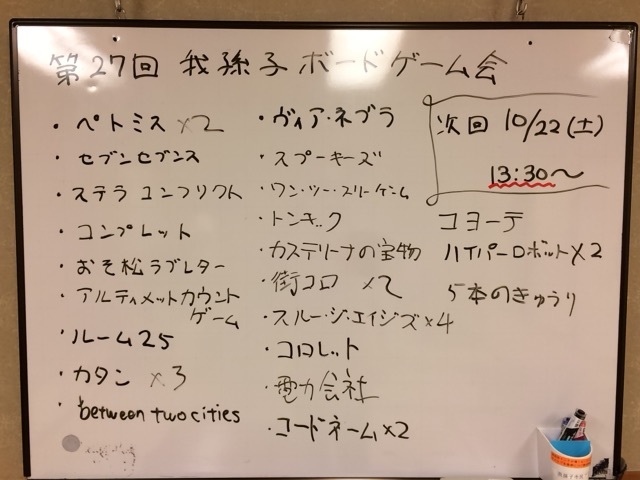 第27回 我孫子ボードゲーム会
・ペトミス ×2
・セブンセブンス
・ステラ コンフリクト
・コンプレット
・おそ松ラブレター
・アルティメットカウント
ゲーム
・ルーム25
・カタン ×3
・between two cities
・ヴィア・ネブラ
・スプーキーズ
・ワン・ツー・スリーゲーム
・トンギック
・カステリーナの宝物
・街コロ ×2
・スルー・ジ・エイジズ×4
・コロレット
・電力会社
・コードネーム×2
次回 10/22(土)
13:30〜
コヨーテ
ハイパーロボット×2
5本のきゅうり